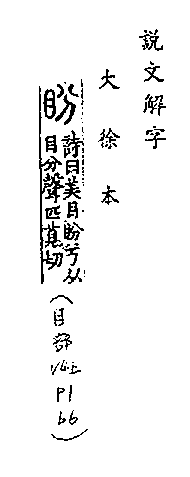 説文解字
大徐本
盼
詩曰美目盼兮从
目分聲匹莧切
(目部V4上P166)